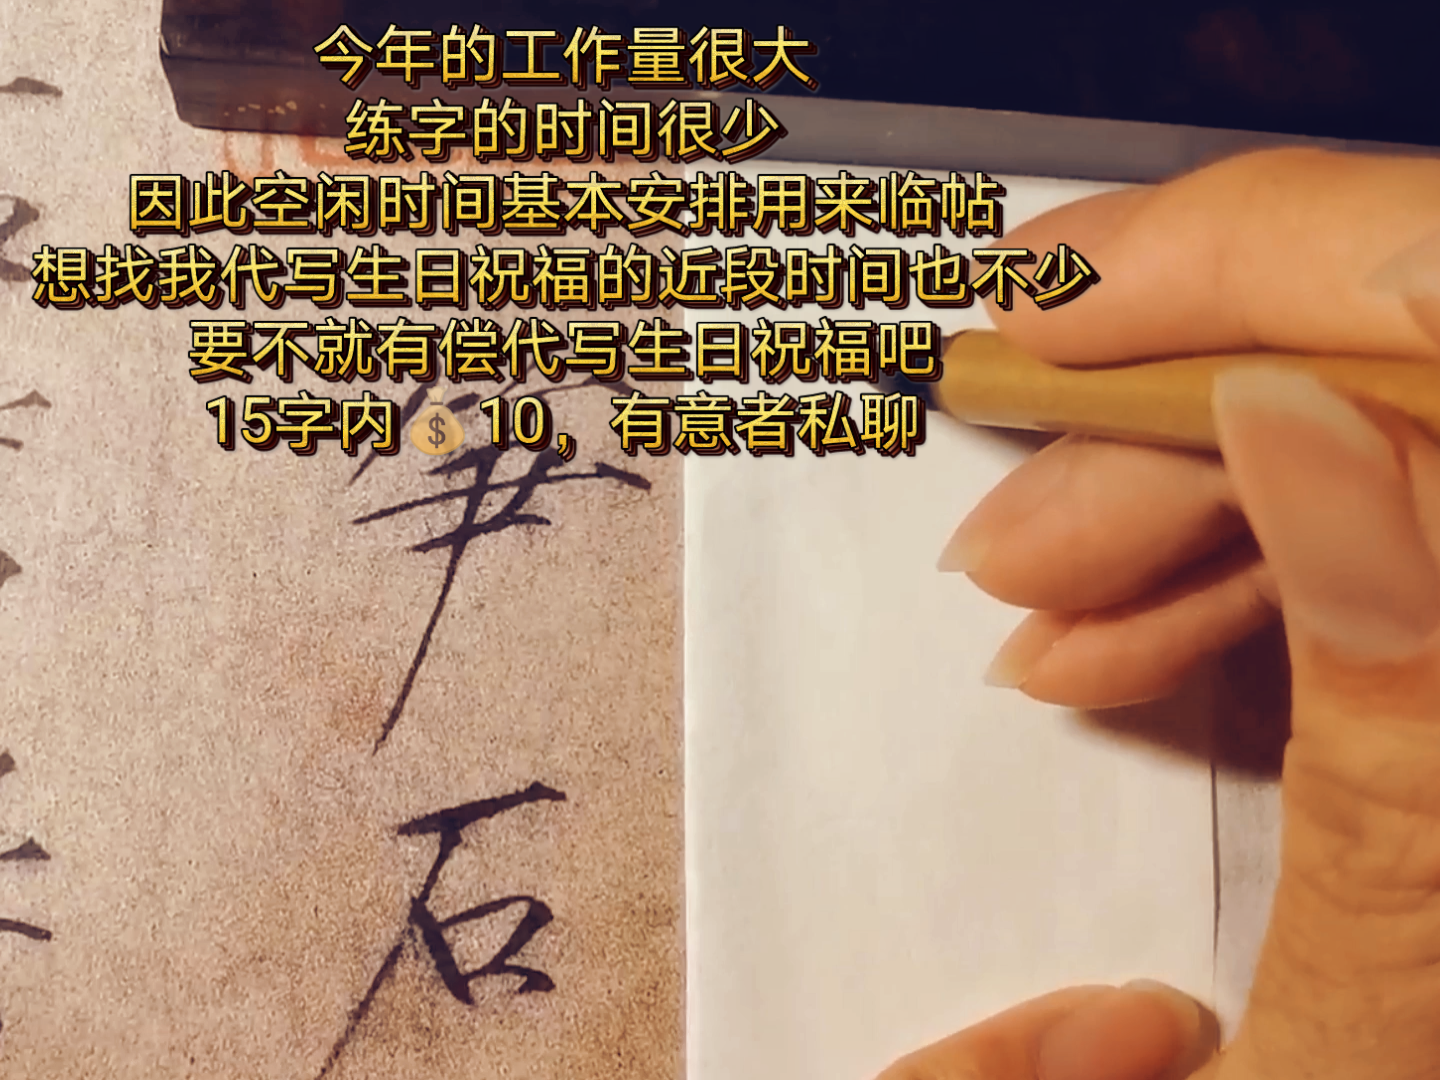 今年的工作量很大
练字的时间很少
因此空闲时间基本安排用来临帖
想找我代写生日祝福的近段时间也不少
要不就有偿代写生日祝福吧
15字内💰 10，有意者私聊
石